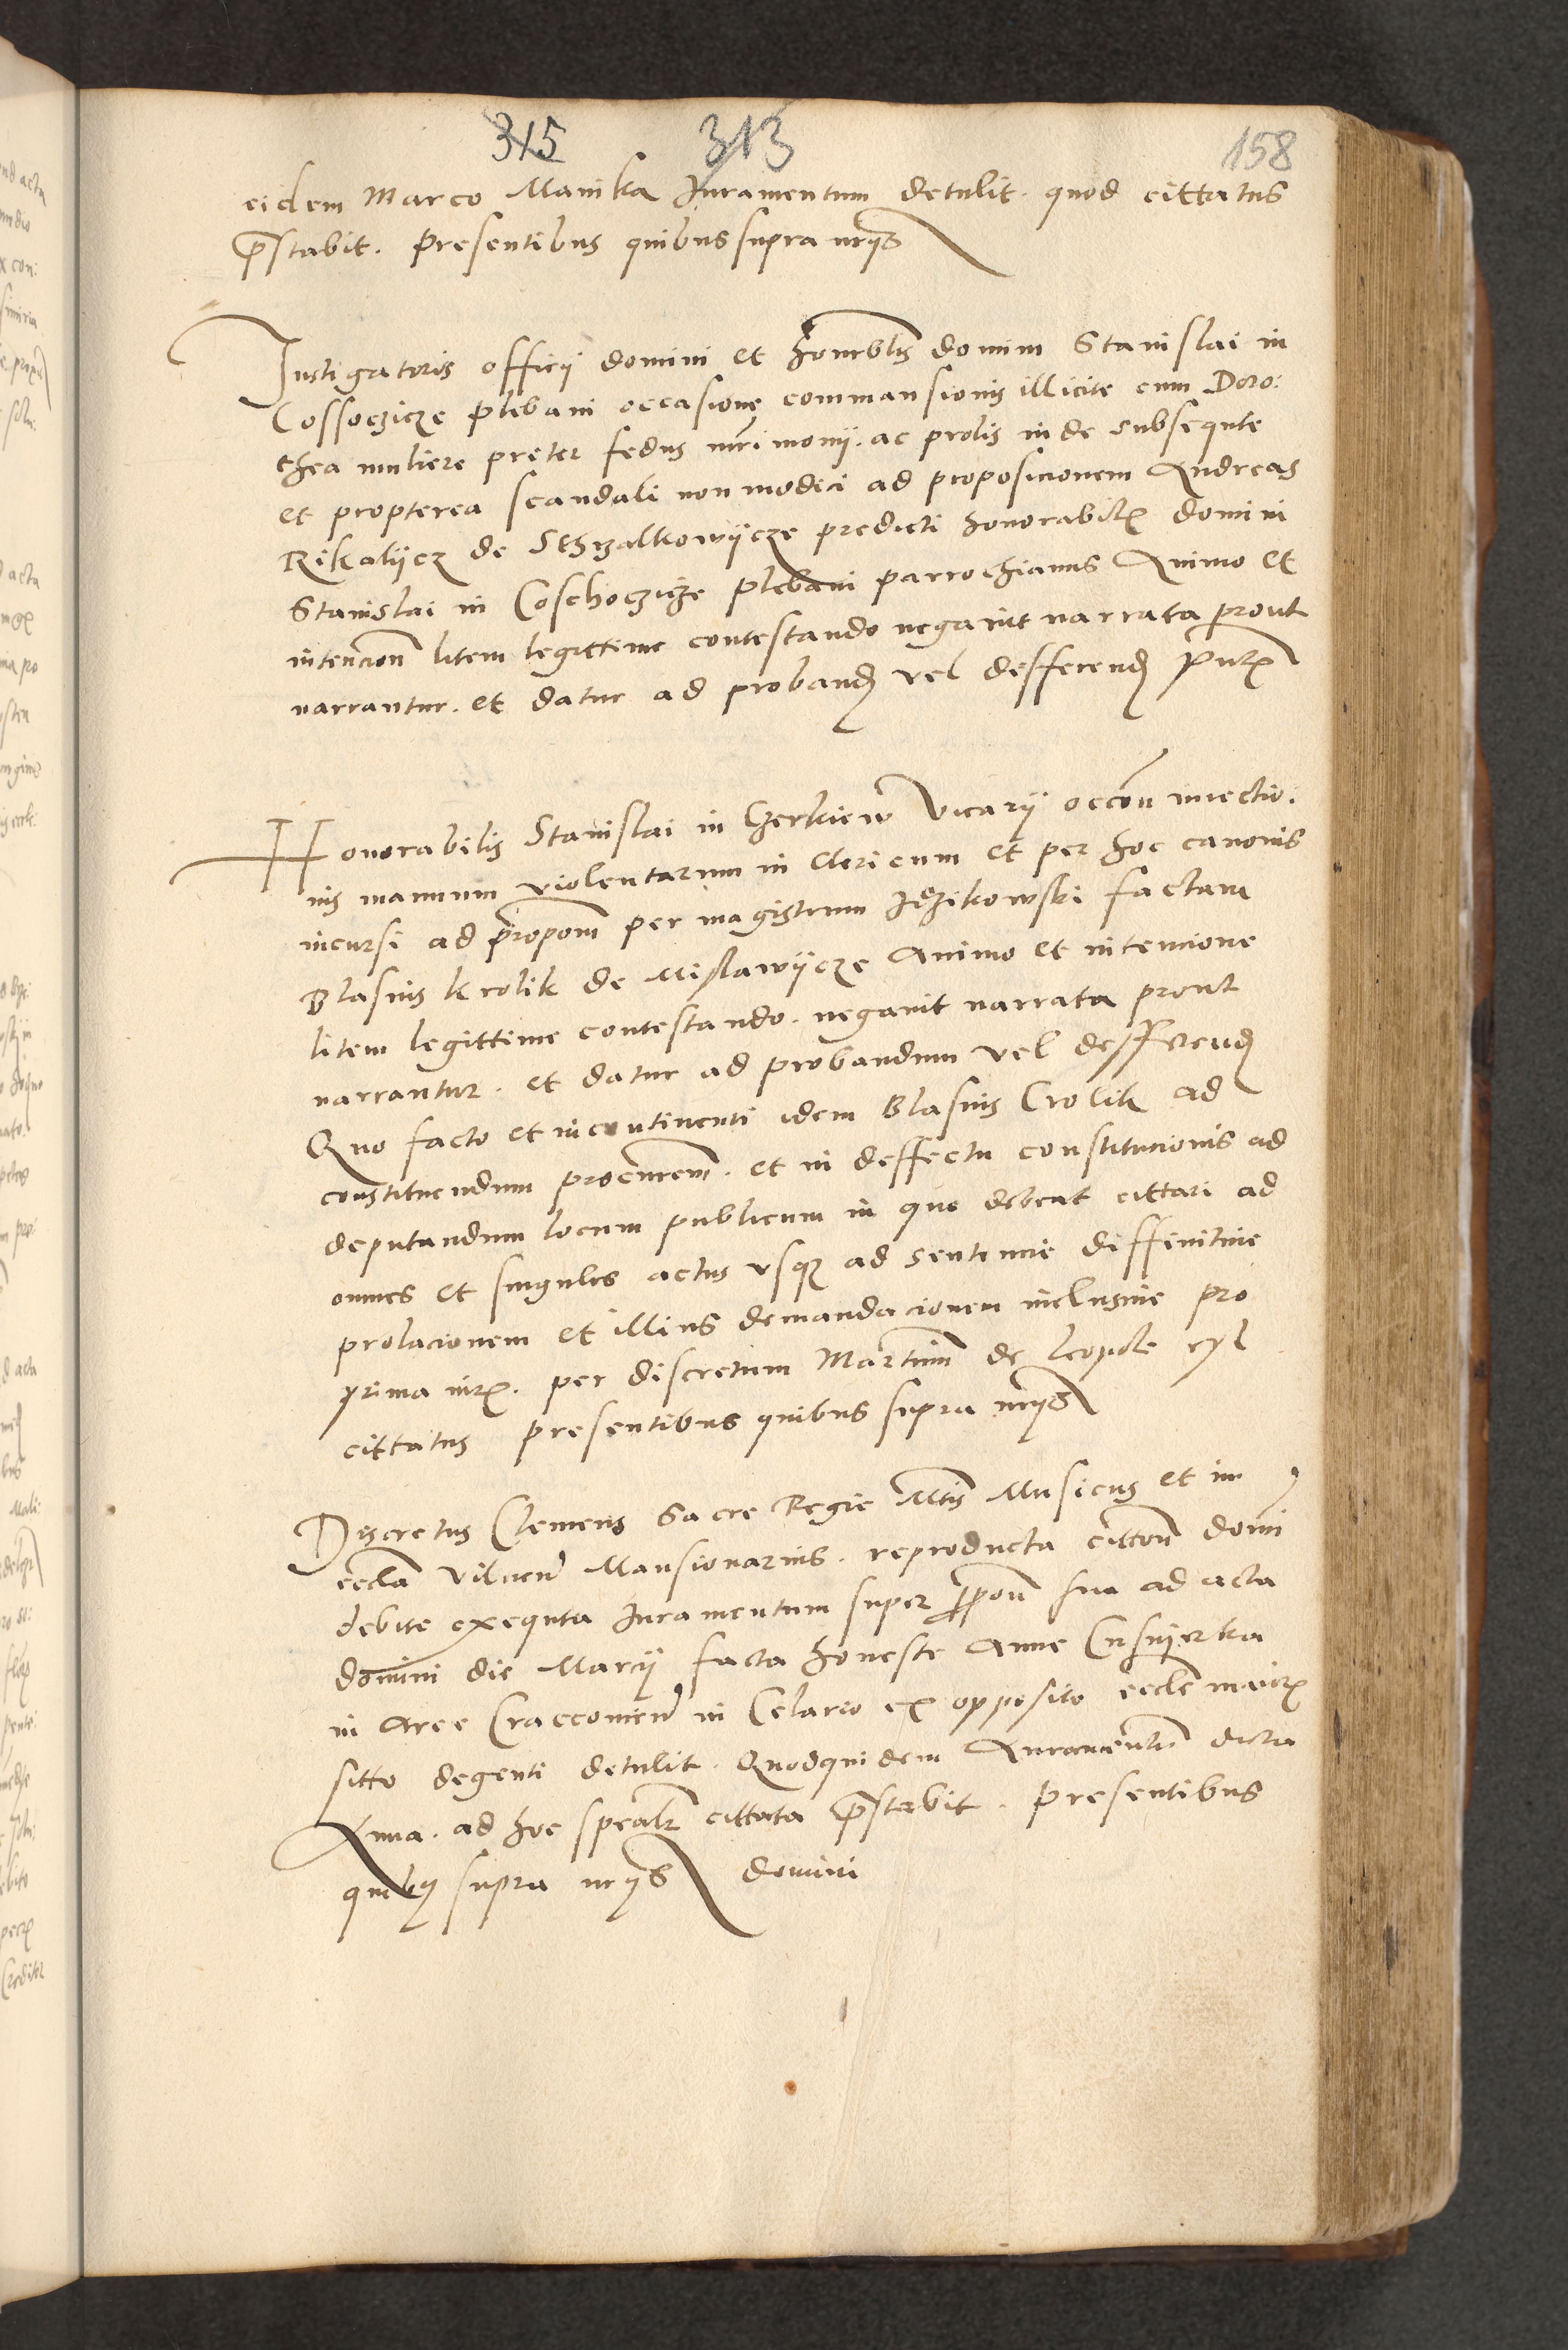 315 313 158
eidem Marco Manika Juramentum detulit. quod cittatus
prestabit. presentibus quibus supra
Instigatoris officij domini et honorablis domini Stanislai in
Cossoczicze plebani occasione commansionis illicite cum Doro:
thea muliere preter fedus mrimonij. ac prolis inde subsequte
et propterea scandali non modici ad proposicionem Andreas
Rikalijcz de Sthrzalkowijcze predicti honorabilis domini
Stanislai in Coschoczicze plebani parrochianus Animo et
intencion litem legittime contestando negavit narrata prout
narrantur. et datur ad proband vel defferend
Honorabilis Stanislai in Czerkiew vicarij occon iniectio.
nis manuum violentarum in Clericum et per hoc canonis
incursi ad propom per magistrum factam
Blasius Krolik de Mislawijcze Animo et intencione
litem legittime contestando. negavit narrata prout
narrantur. et datur ad probandum vel defferend
Quo facto et incontinenti idem Blasius Crolik ad
constituendum procurem. et in deffectu constitucionis ad
deputandum locum publicum in quo debeat cittari ad
omnes et singulos actus usque ad sentencie diffinitive
prolacionem et illius demandacionem inclusive pro
prima iur. per discretum Martinum de Leopole
cittatus presentibus quibus supra
Discretus Clemens Sacre Regie Mtis Musicus et in
eccla Vilnen Mansionarius. reproducta cittcon domi
debite exequta Juramentum super propon sua ad acta
domini die Marcij facta honeste Anne
in Arce Craccovien in Celario ex opposito eccle maior
sitto degenti detulit. Quodquidem Juramentum dicta
Anna. ad hoc spealr cittata prestabit. presentibus
quibus supra domini